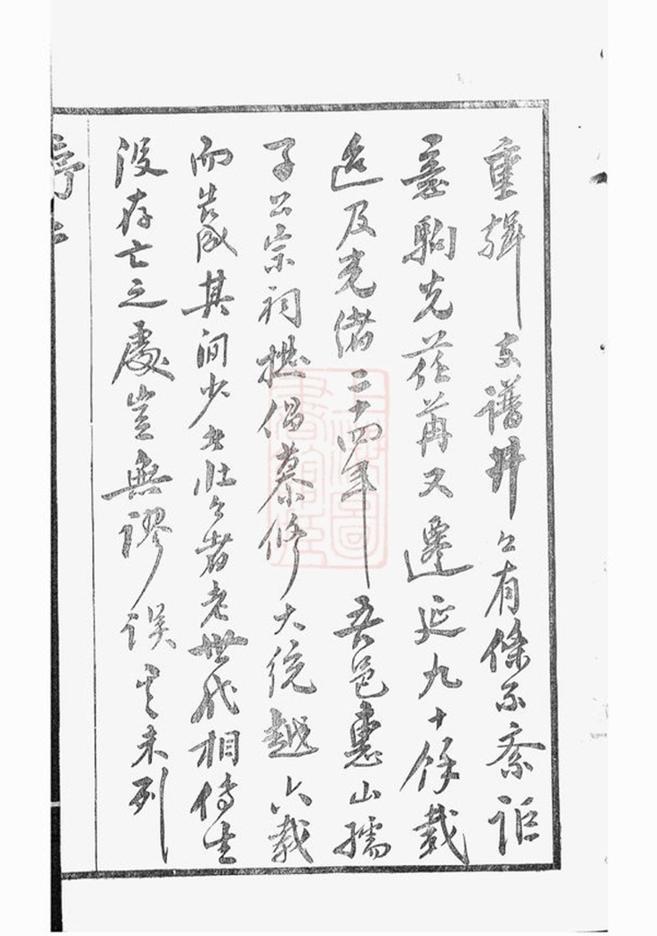 重輯 支譜井々有條不紊詎
意駒光荏苒又遷延九十餘載
迄及光緒三十四年吾邑惠山孺
子公宗祠 倡募修大統越六載
而告成其間少者壯々者老世代相傳生
沒存亡之處豈無謬誤 未列
序